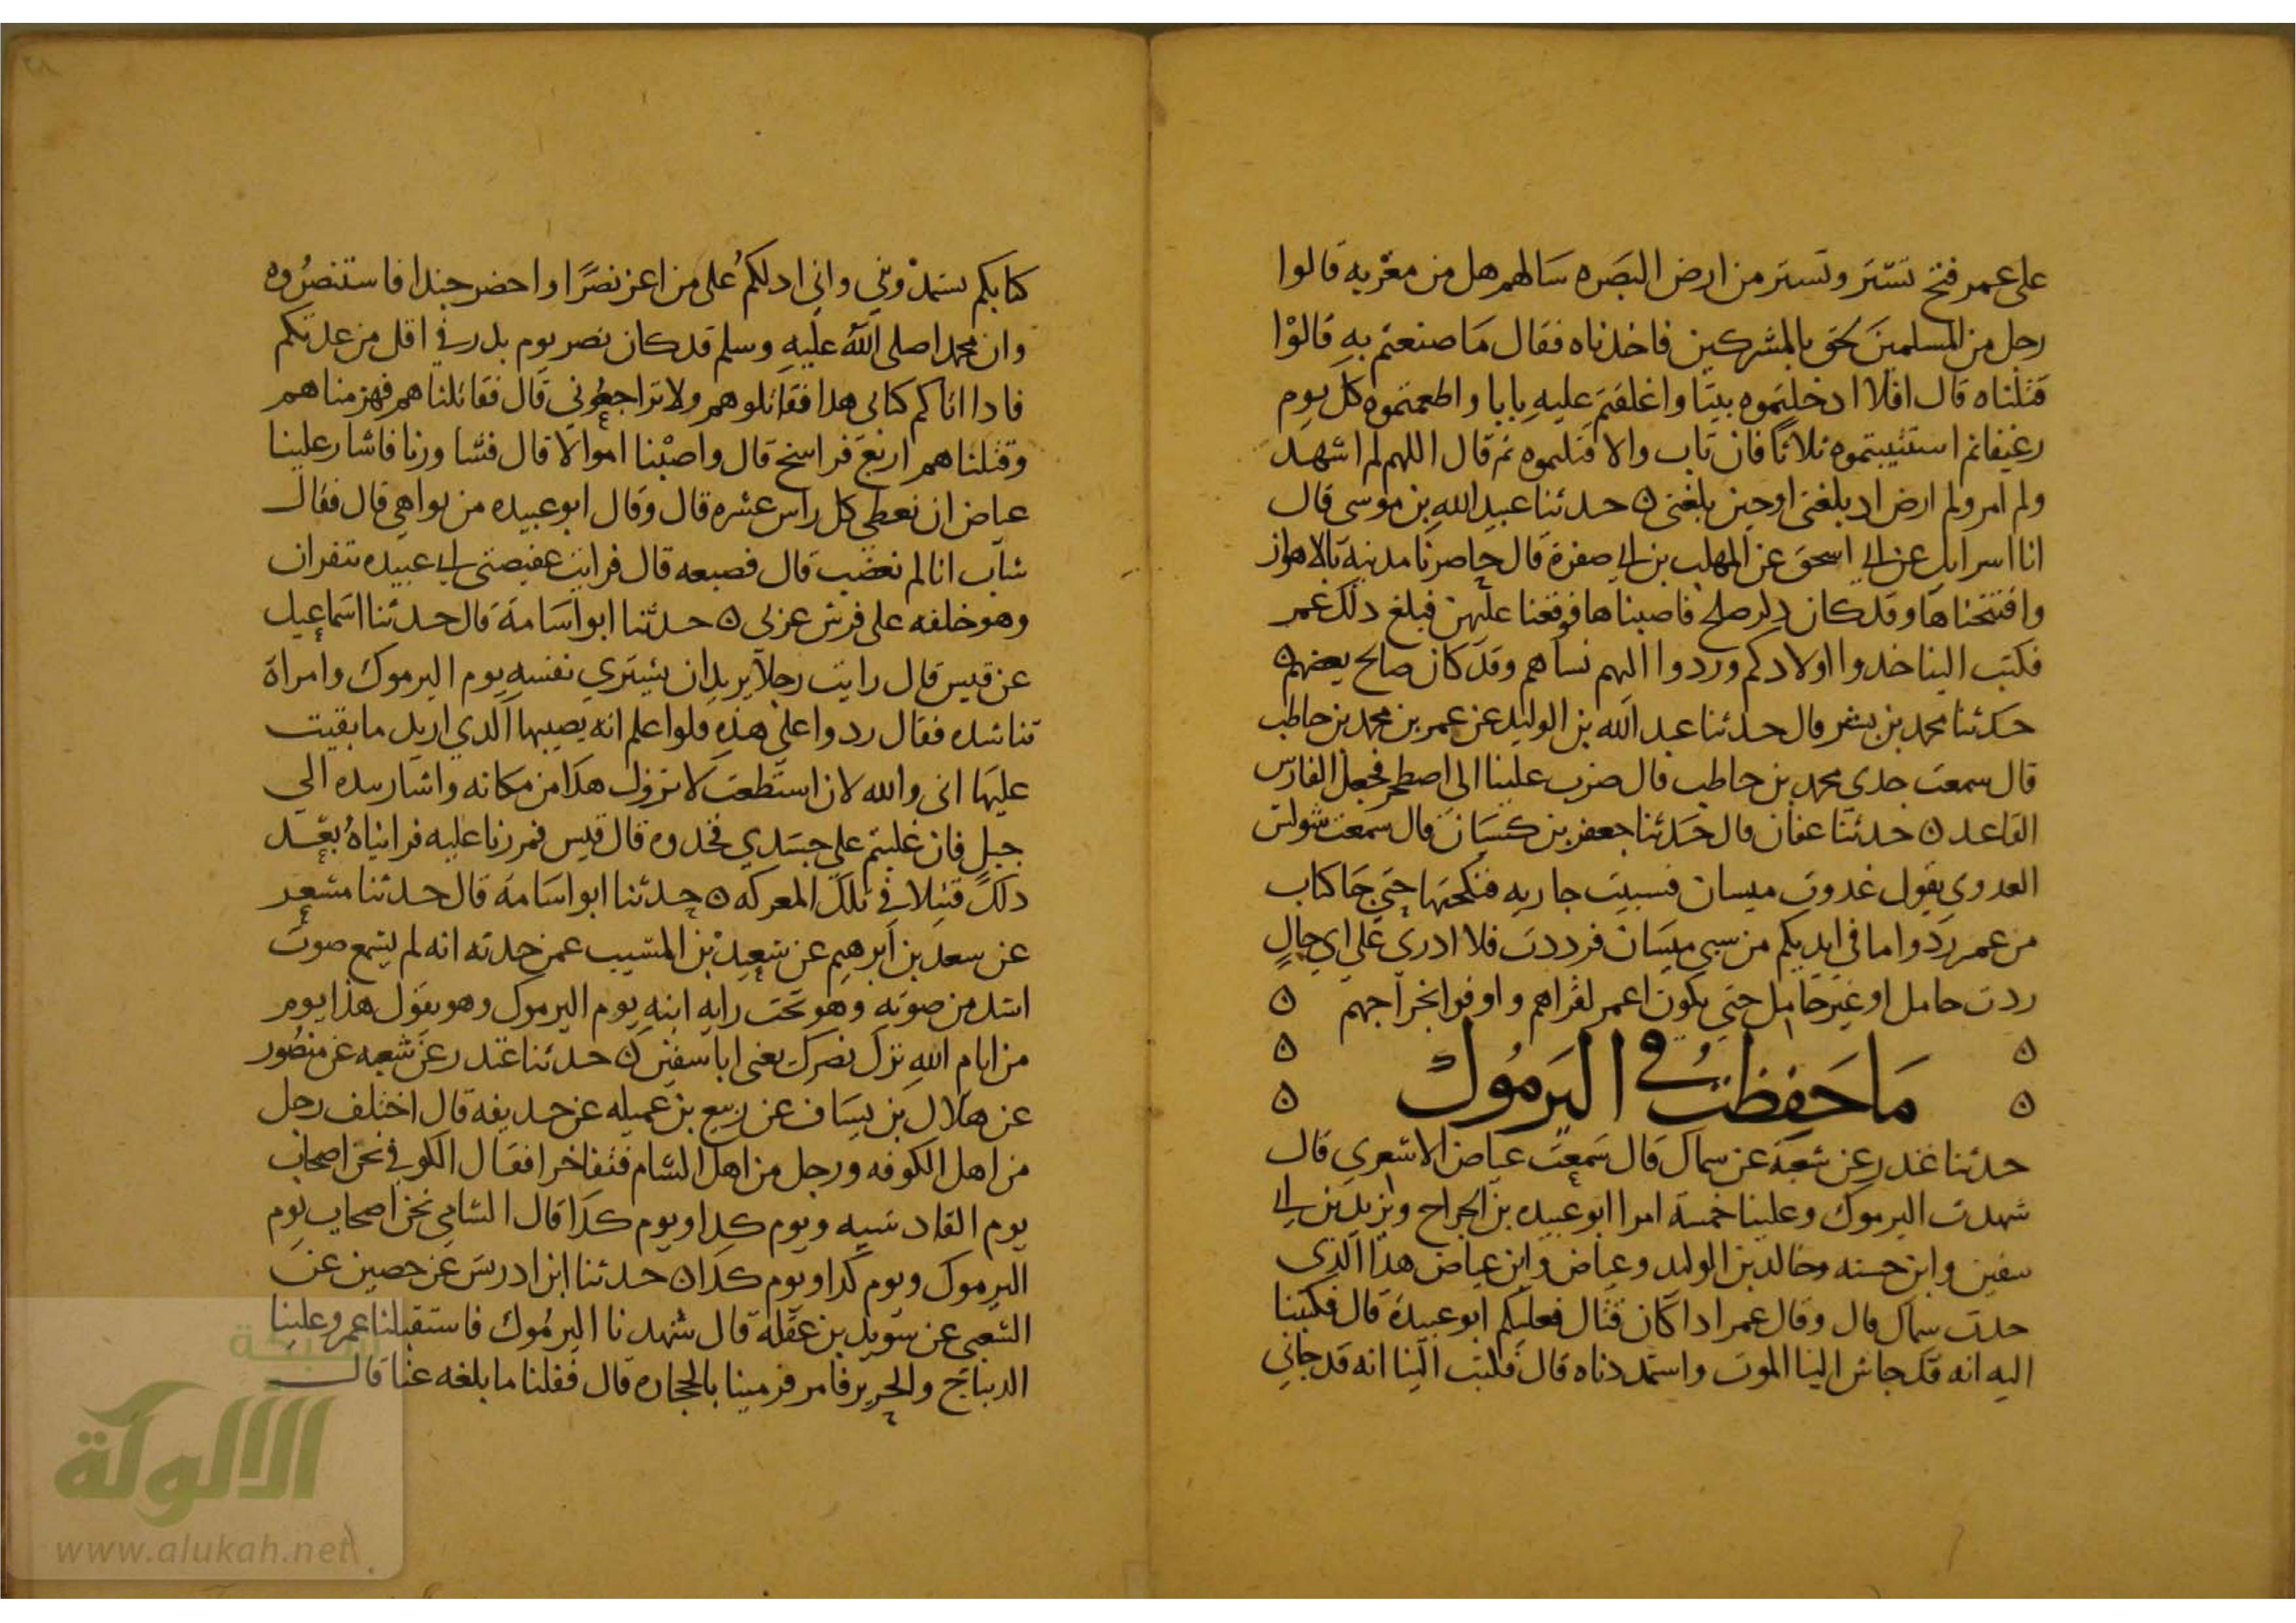 على عمر فتح تستر وتستر من ارض البصره سالهم هل من مغربه قالوا
رجل من المسلمين لحق بالمشركين فاخذناه فقال ما صنعتم به قالوا
قتلناه قال افلا ادخلتموه بيتا واغلقتم عليه بابا واطعمتموه كل يوم
رغيفا ثم استتيبتموه ثلاثا فان تاب والا قتلتموه ثم قال اللهم لم اشهد
ولم امر ولم ارض اد بلغنى او حين بلغنى ه حدثنا عبيد الله بن موسى قال
انا اسرايل عن ابي اسحق عن المهلب بن ابي صفرة قال حاصرنا مدينة بالاهواز
وافتتحناها وقد كان دكر صلح فاصبنا ها فوقعنا عليهن فبلغ دلك عمر
فكتب الينا خدوا اولادكم وردوا اليهم نساهم وقد كان صالح بعضهم ه
حدثنا محمد بن بشر قال حدثنا عبد الله بن الوليد عن عمر بن محمد بن حاطب
قال سمعت جدى محمد بن حاطب قال ضرب علينا الى اصطخر فجعل الفارس
القاعد ه حدثنا عفان قال حدثنا جعفر بن كيسان قال سمعت شويس
العدوى يقول غدوت ميسان فسبيت جاريه فنكحتها حتى جا كتاب
من عمر ردوا ما في ايديكم من سبي ميسان فرددت فلا ادرى على اي حال
ردت حامل او غير حامل حتى يكون اعمر لقراهم واوفر لخراجهم ه
ه ما حفظت في اليرموك ه
ه ه
حدثنا غندر عن شعبة عن سماك قال سمعت عياض الاشعري قال
شهدت اليرموك وعلينا خمسة امرا ابو عبيده بن الجراح ويزيد بن ابي
سفين وابن حسنه وخالد بن الوليد وعياض وابن عياض هذا الذي
حدث سماك قال وقال عمر ادا كان قتال فعليكم ابو عبيدة قال فكتبنا
اليه انه قد جاش الينا الموت واستمددناه قال فكتب الينا انه قد جاني
كتابكم تستمدوني واني ادلكم على من اعز نصرا واحضر جندا فاستنصروه
وان محمدا صلى الله عليه وسلم قد كان نصر يوم بدر في اقل من عدتكم
فادا اتاكم كتابى هدا فقاتلوهم ولا تراجعوني قال فقاتلناهم فهزمناهم
وقتلناهم اربع فراسخ قال واصبنا اموالا قال فتشاورنا فاشار علينا
عياض ان نعطي كل راس عشره قال وقال ابو عبيده من يواهي قال فقال
شاب انا لم تغضب قال فصبعه قال فرايت عقيصتى ابي عبيده تنقزان
وهو خلفه على فرس عربى ه حدثنا ابو اسامة قال حدثنا اسماعيل
عن قيس قال رايت رجلا يريد ان يشتري نفسه يوم اليرموك وامراة
تناشده فقال ردوا على هذه فلو اعلم انه يصيبها الدي اريد ما بقيت
عليها انى والله لان استطعت لا تزول هدا من مكانه واشار بيده الى
جبل فان غلبتم على جسدي فخدوه قال قيس فمررنا عليه فرايناه بعد
دلك قتيلا في تلك المعركه ه حدثنا ابو اسامة قال حدثنا مسعر
عن سعد بن ابرهيم عن سعيد بن المسيب عمن حدثه انه لم يسمع صوت
اشد من صوته وهو تحت رايه ابنه يوم اليرموك وهو يقول هذا يوم
من ايام الله نزل نصرك يعنى ابا سفين ه حدثنا غندر عن شعبه عن منصور
عن هلال بن يساف عن ربيع بن عميله عن حديفه قال اختلف رجل
من اهل الكوفه ورجل من اهل الشام فتفاخرا فقال الكوفي نحن اصحاب
يوم القادسيه ويوم كدا ويوم كدا قال الشامي نحن اصحاب يوم
اليرموك ويوم كدا ويوم كدا ه حدثنا ابن ادريس عن حصين عن
الشعبى عن سويد بن غفلة قال شهدنا اليرموك فاستقبلنا عمر وعلينا
الديباج والحرير فامر فرمينا بالحجاره قال فقلنا ما بلغه عنا قال
شبكة
الألوكة
www.alukah.net